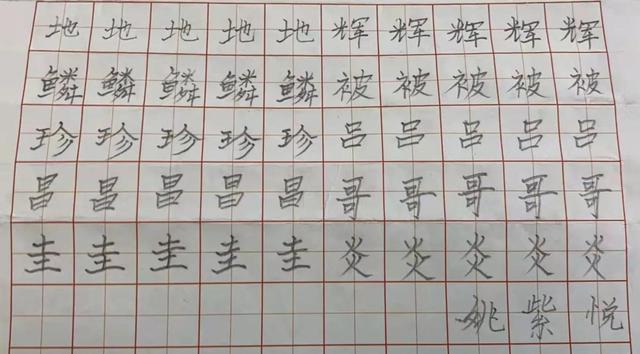 地地地地地辉辉辉辉辉
鳞鳞鳞鳞鳞被被被被被
珍珍珍珍珍吕吕吕吕吕
昌昌昌昌昌哥哥哥哥哥
圭圭圭圭圭炎炎炎炎炎
姚紫悦